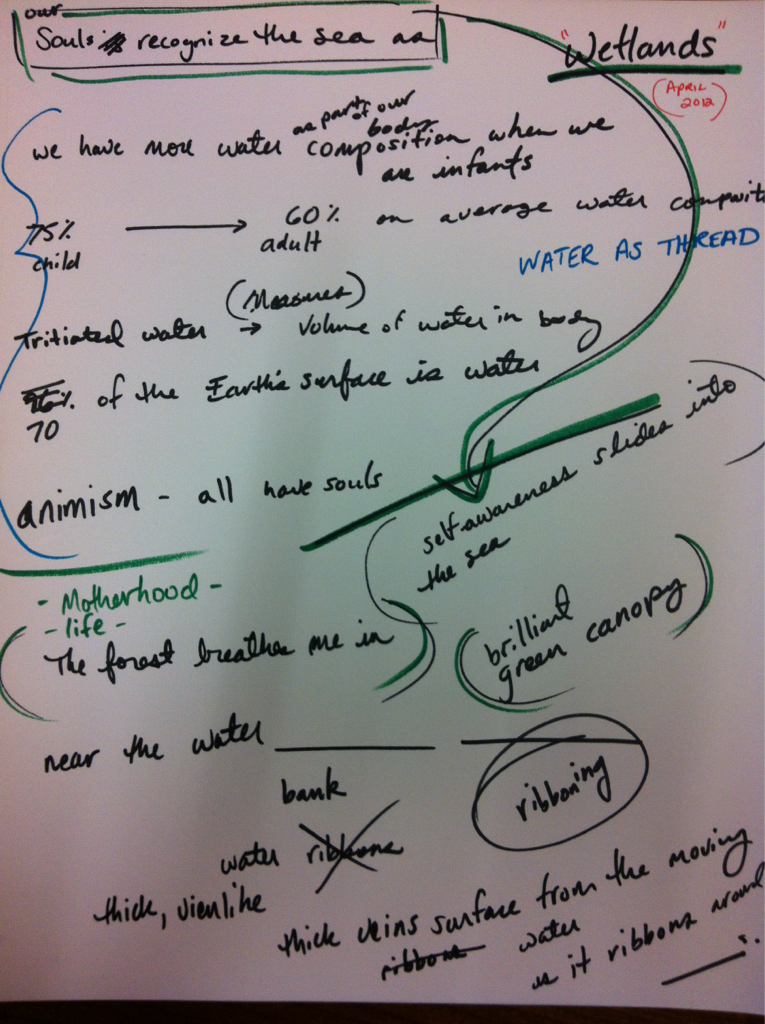 our
Souls recognize the sea as
"Wetlands"
(April 2012)
we have more water as part of our body composition when we are infants
75% child → 60% adult on average water composit
WATER AS THREAD
Tritiated water → (Measures) volume of water in body
70 % of the Earth's surface is water
animism - all have souls
self-awareness slides into
the sea
- Motherhood -
- life -
The forest breathes me in
brilliant
green canopy
near the water
bank
ribboning
water ribbons
thick, vienlike
thick veins surface from the moving
ribbons water
as it ribbons around